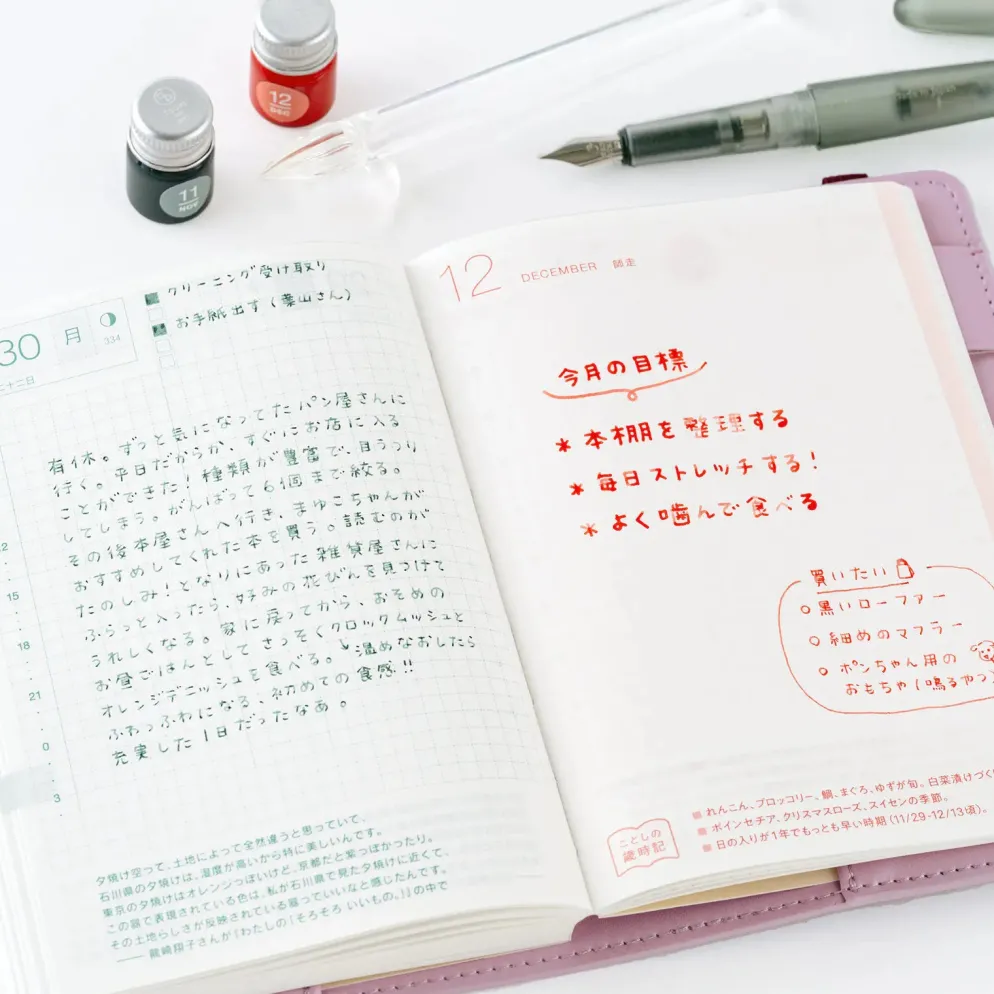 12
DEC
11
NOV
30 月 334
二十二日
クリーニング受け取り
お手紙出す(葉山さん)
有休。ずっと気になってたパン屋さんに
行く。平日だからか、すぐにお店に入る
ことができた!種類が豊富で、目うつり
してしまう。がんばって6個まで絞る。
その後本屋さんへ行き、まゆこちゃんが
おすすめしてくれた本を買う。読むのが
たのしみ!となりにあった雑貨屋さんに
ふらっと入ったら、好みの花びんを見つけて
うれしくなる。家に戻ってから、おそめの
お昼ごはんとしてさっそくクロックムッシュと
オレンジデニッシュを食べる。温めなおしたら
ふわっふわになる、初めての食感!!
充実した1日だったなあ。
12
15
18
21
0
3
夕焼け空って、土地によって全然違うと思っていて、
石川県の夕焼けは、湿度が高いから特に美しいんです。
東京の夕焼けはオレンジっぽいけど、京都だと紫っぽかったり。
この器で表現されている色は、私が石川県で見た夕焼けに近くて、
その土地らしさが反映されている器っていいなと感じたんです。
── 龍崎翔子さんが『わたしの「そろそろ いいもの。」』の中で
12 DECEMBER 師走
今月の目標
* 本棚を整理する
* 毎日ストレッチする!
* よく噛んで食べる
買いたい
○黒いローファー
○細めのマフラー
○ポンちゃん用の
おもちゃ(鳴るやつ)
ことしの
歳時記
■ れんこん、ブロッコリー、鯛、まぐろ、ゆずが旬。白菜漬けづくり
■ ポインセチア、クリスマスローズ、スイセンの季節。
■ 日の入りが1年でもっとも早い時期(11/29-12/13頃)。